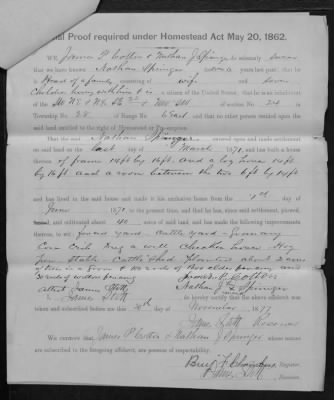 Final Proof required under Homestead Act May 20, 1862.
WE, James P. Cotton & Nathan J. Springer do solemnly swear
that we have known Nathan Springer for years last past; that he
is Head of a family consisting of wife and seven
Children living with him & is a citizen of the United States; that he is an inhabitant
of the of section No. 24 in
Township No. 28 of Range No. 6 East and that no other person resided upon the said
land entitled to the right of Homestead or Pre-emption.
That the said Nathan Springer entered upon and made settlement
on said land on the last day of March, 1871, and has built a house
thereon of frame 14 ft by 16 ft. and a log house 14 ft
by 16 ft and a room between the two 6 ft by 14 ft
and has lived in the said house and made it his exclusive home from the 1st day of
June 1871, to the present time, and that he has, since said settlement, plowed,
fenced, and cultivated about 40 acres of said land, and has made the following improvements
thereon, to wit: fenced yard - cattle yard - Granary
Corn Crib dug a well Chicken house - Hog
pen Stable - Cattle Shed Planted about 2 acres
of trees in a grove & rods of Box elder growing and
rods of willow growing
James P. Cotton
Attest James Stott
Nathan J. Springer
I, James Stott do hereby certify that the above affidavit was
taken and subscribed before me this day of November 1877
James Stott Receiver
We certify that James P. Cotton & Nathan J. Springer whose names
are subscribed to the foregoing affidavit, are persons of respectability.
Register.
James Stott Receiver.